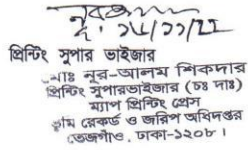 ১৫/১১/২২
প্রিন্টিং সুপার ভাইজার
মোঃ নূর-আলম শিকদার
প্রিন্টিং সুপারভাইজার (চঃ দাঃ)
ম্যাপ প্রিন্টিং প্রেস
ভূমি রেকর্ড ও জরিপ অধিদপ্তর
তেজগাঁও, ঢাকা-১২০৮।